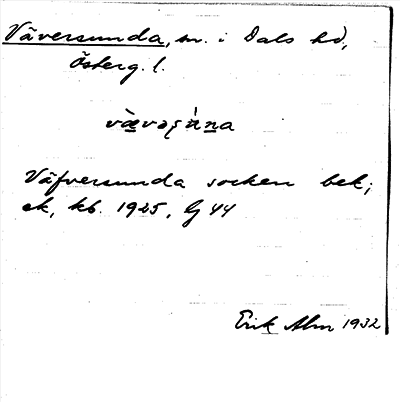 Väversunda, sn. i Dals hd,
Österg. l.
Väfversunda socken bek;
ek, kb. 1925, G 44
Erik Alm 1932